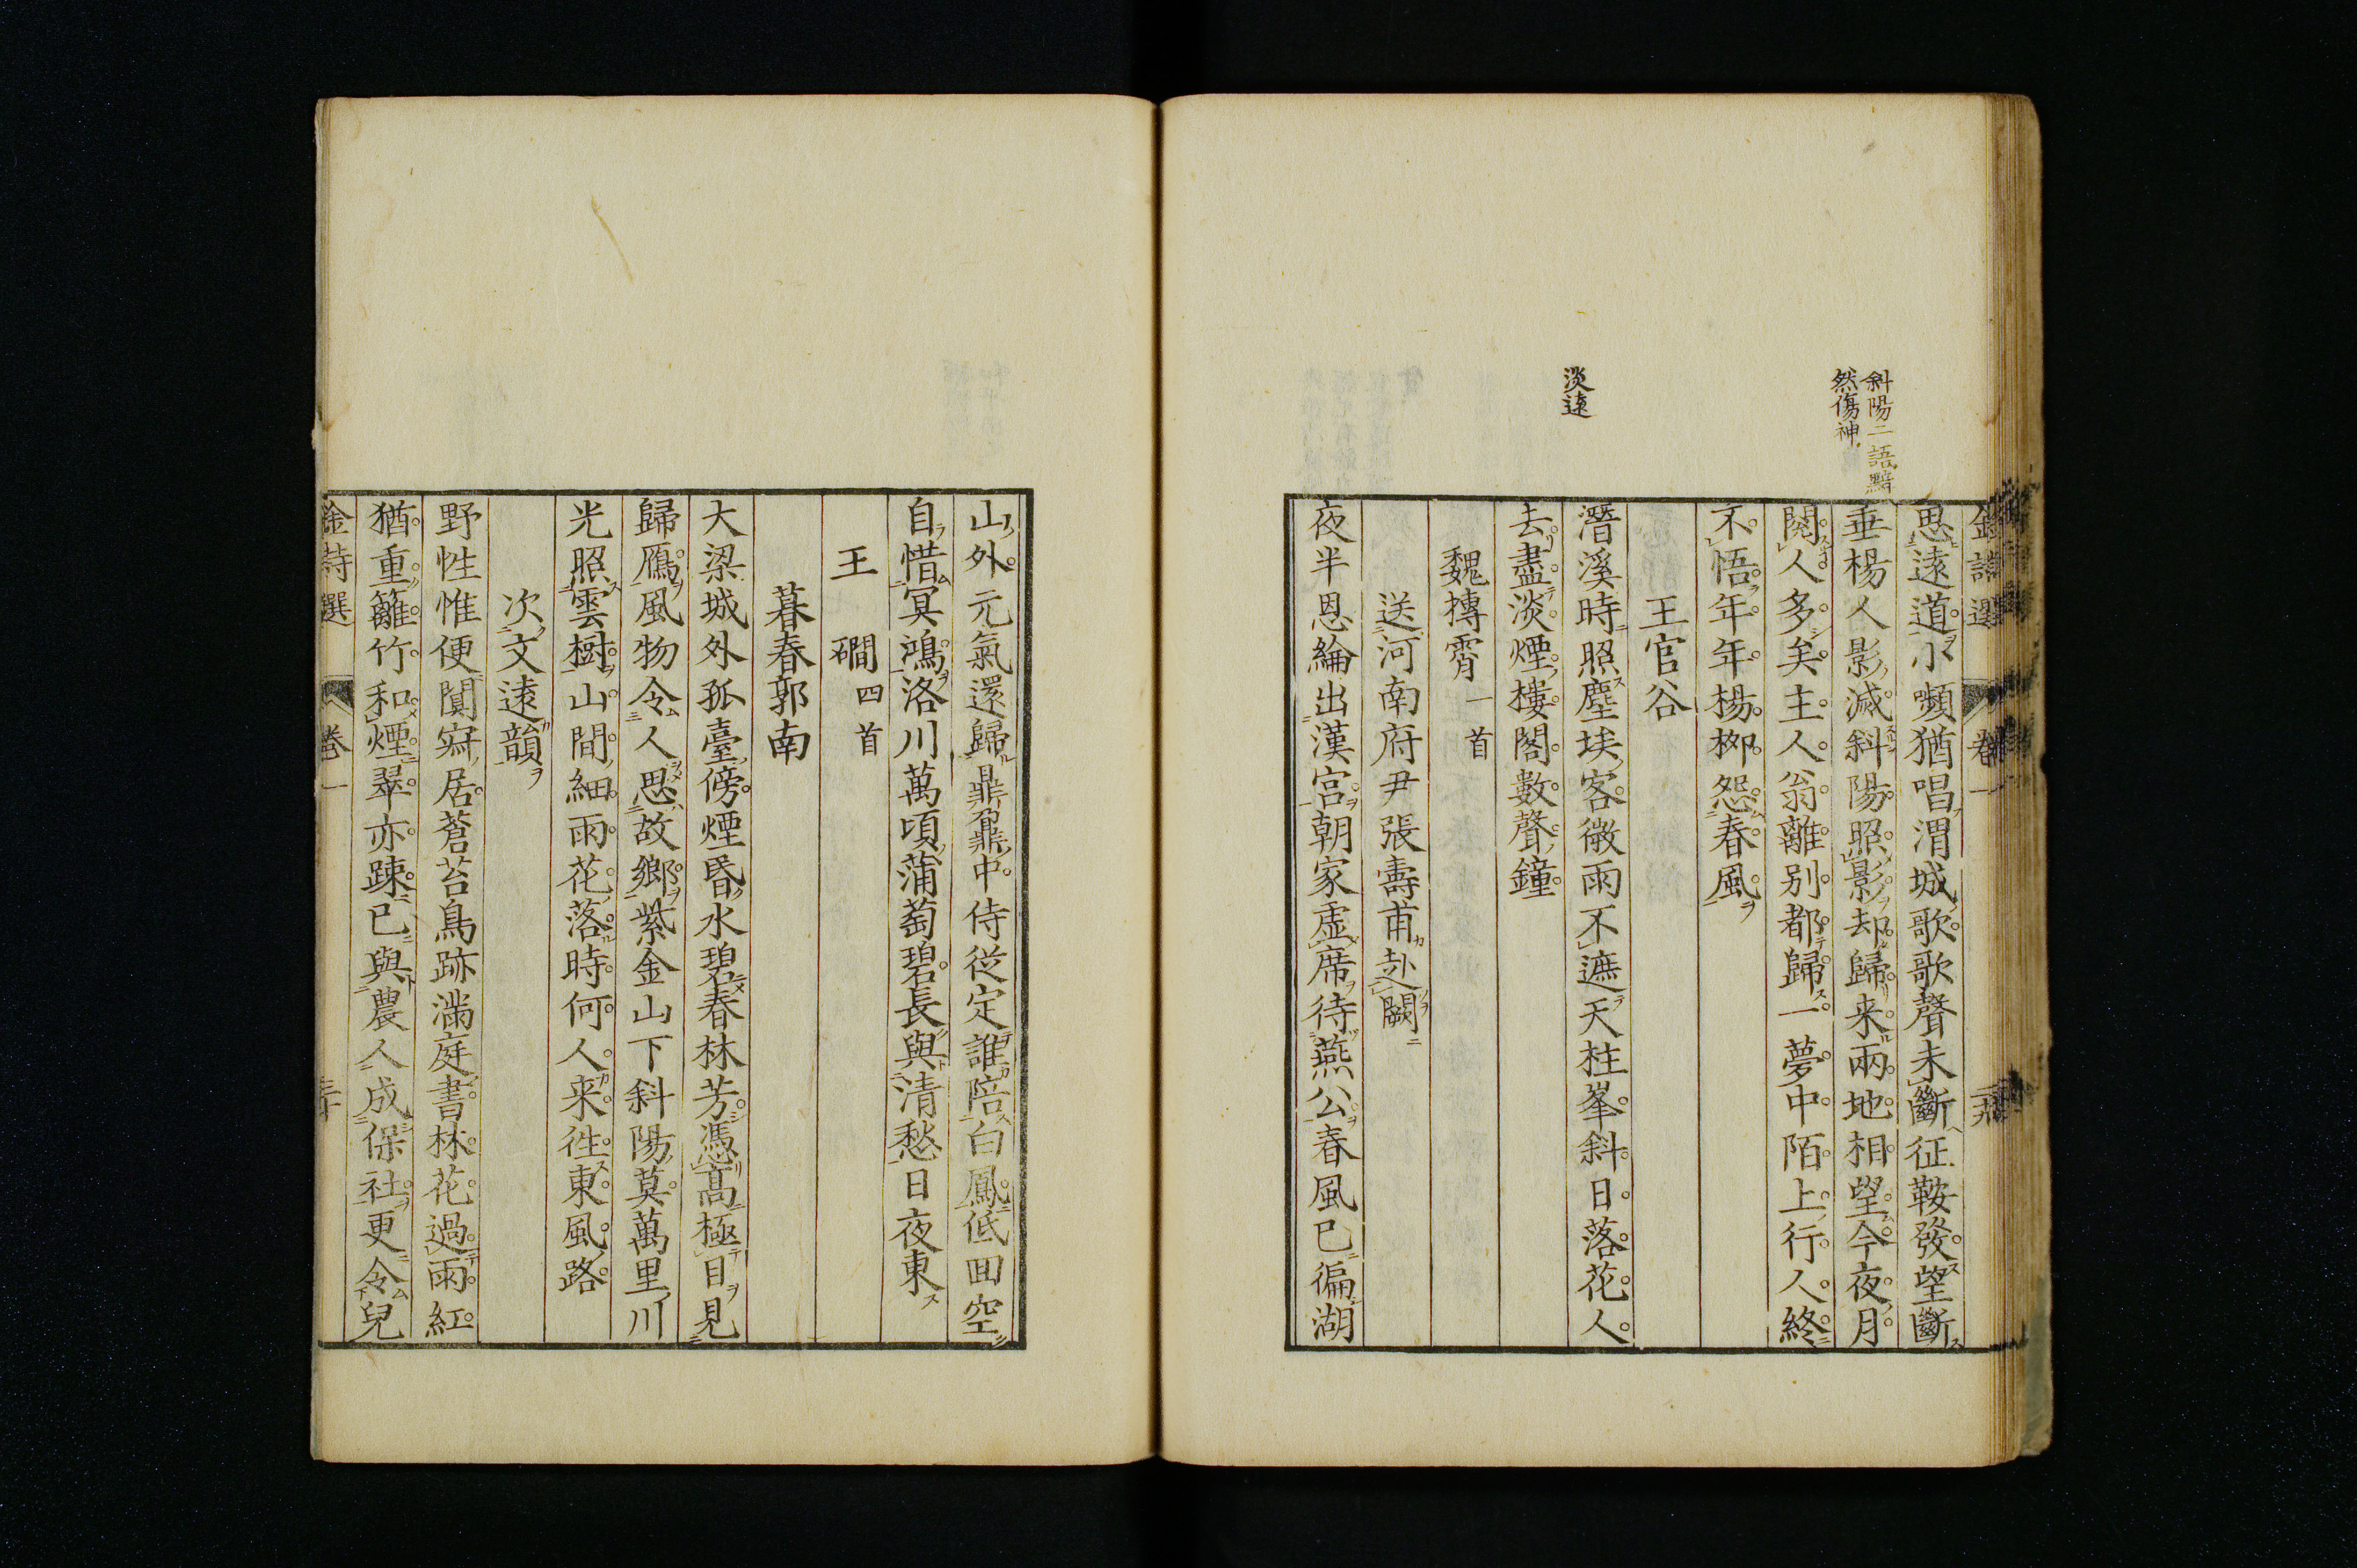 斜陽二語黯
然傷神
淡遠
金詩選 卷一
思遠道小嚬猶唱渭城歌歌聲未斷征鞍發望斷
垂楊人影滅斜陽照影却歸来兩地相望今夜月
閱人多矣主人翁離别都歸一夢中陌上行人終
不悟年年楊柳怨春風
王官谷
潛溪時照塵埃客微雨不遮天柱峯斜日落花人
去盡淡煙樓閣數聲鐘
魏摶霄一首
送河南府尹張壽甫赴闕
夜半恩綸出漢宫朝家虚席待燕公春風已徧湖
山外元氣還歸鼎鼐中侍從定誰陪白鳳低回空
自惜冥鴻洛川萬頃蒲萄碧長與清愁日夜東
王磵四首
暮春郭南
大梁城外孤臺傍煙昏水碧春林芳馮髙極目見
歸鴈風物令人思故鄉紫金山下斜陽莫萬里川
光照雲樹山間細雨花落時何人来往東風路
次文遠韻
野性惟便闃寂居蒼苔鳥跡滿庭書林花過雨紅
猶重籬竹和煙翠亦踈已與農人成保社更令兒
金詩選 卷一